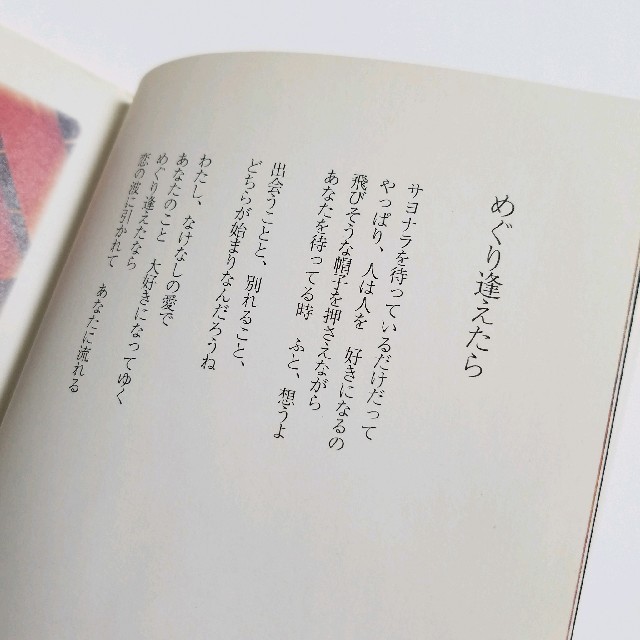 めぐり逢えたら
サヨナラを待っているだけだって
やっぱり、人は人を　好きになるの
飛びそうな帽子を押さえながら
あなたを待ってる時　ふと、想うよ
出会うことと、別れること、
どちらが始まりなんだろうね
わたし、なけなしの愛で
あなたのこと　大好きになってゆく
めぐり逢えたなら
恋の波に引かれて　あなたに流れる